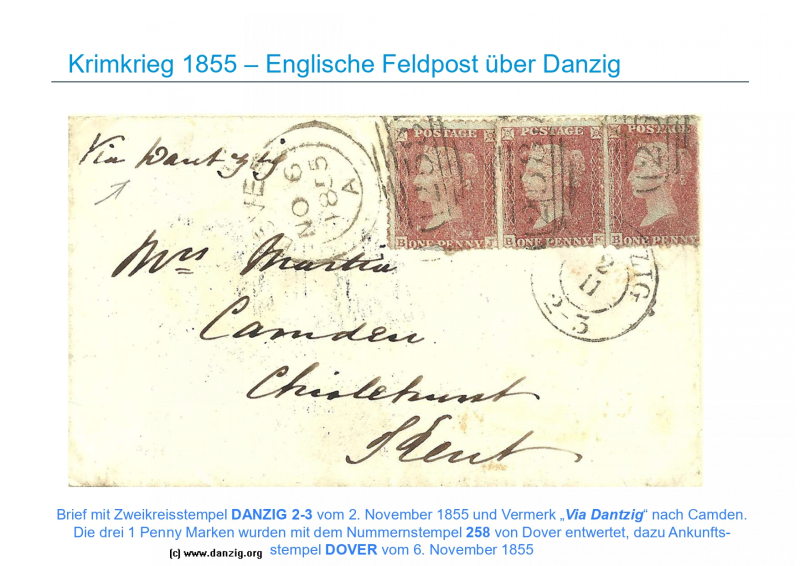 Krimkrieg 1855 – Englische Feldpost über Danzig
Via Dantzig
NO 6
1855
A
POSTAGE
POSTAGE
POSTAGE
258
258
ONE PENNY
ONE PENNY
ONE PENNY
Mrs Martin
Camden
Chislehurst
Kent
2
11
2-3
Brief mit Zweikreisstempel DANZIG 2-3 vom 2. November 1855 und Vermerk „Via Dantzig“ nach Camden.
Die drei 1 Penny Marken wurden mit dem Nummernstempel 258 von Dover entwertet, dazu Ankunfts-
stempel DOVER vom 6. November 1855
(c) www.danzig.org